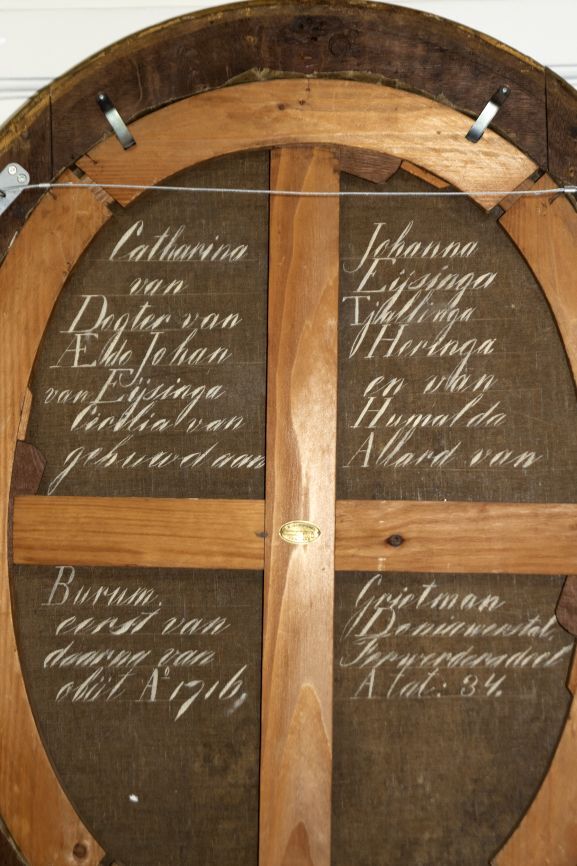 Catharina Johanna
van Eijsinga
Dogter van Tjallinga
Ældo Johan Heringa
van Eijsinga en van
Cecilia van Humalda
gehuwd aan Allard van
Burum, Grietman
eerst van Doniawerstal
daarna van Ferwerderadeel
obiit A° 1716, Ætat: 34.